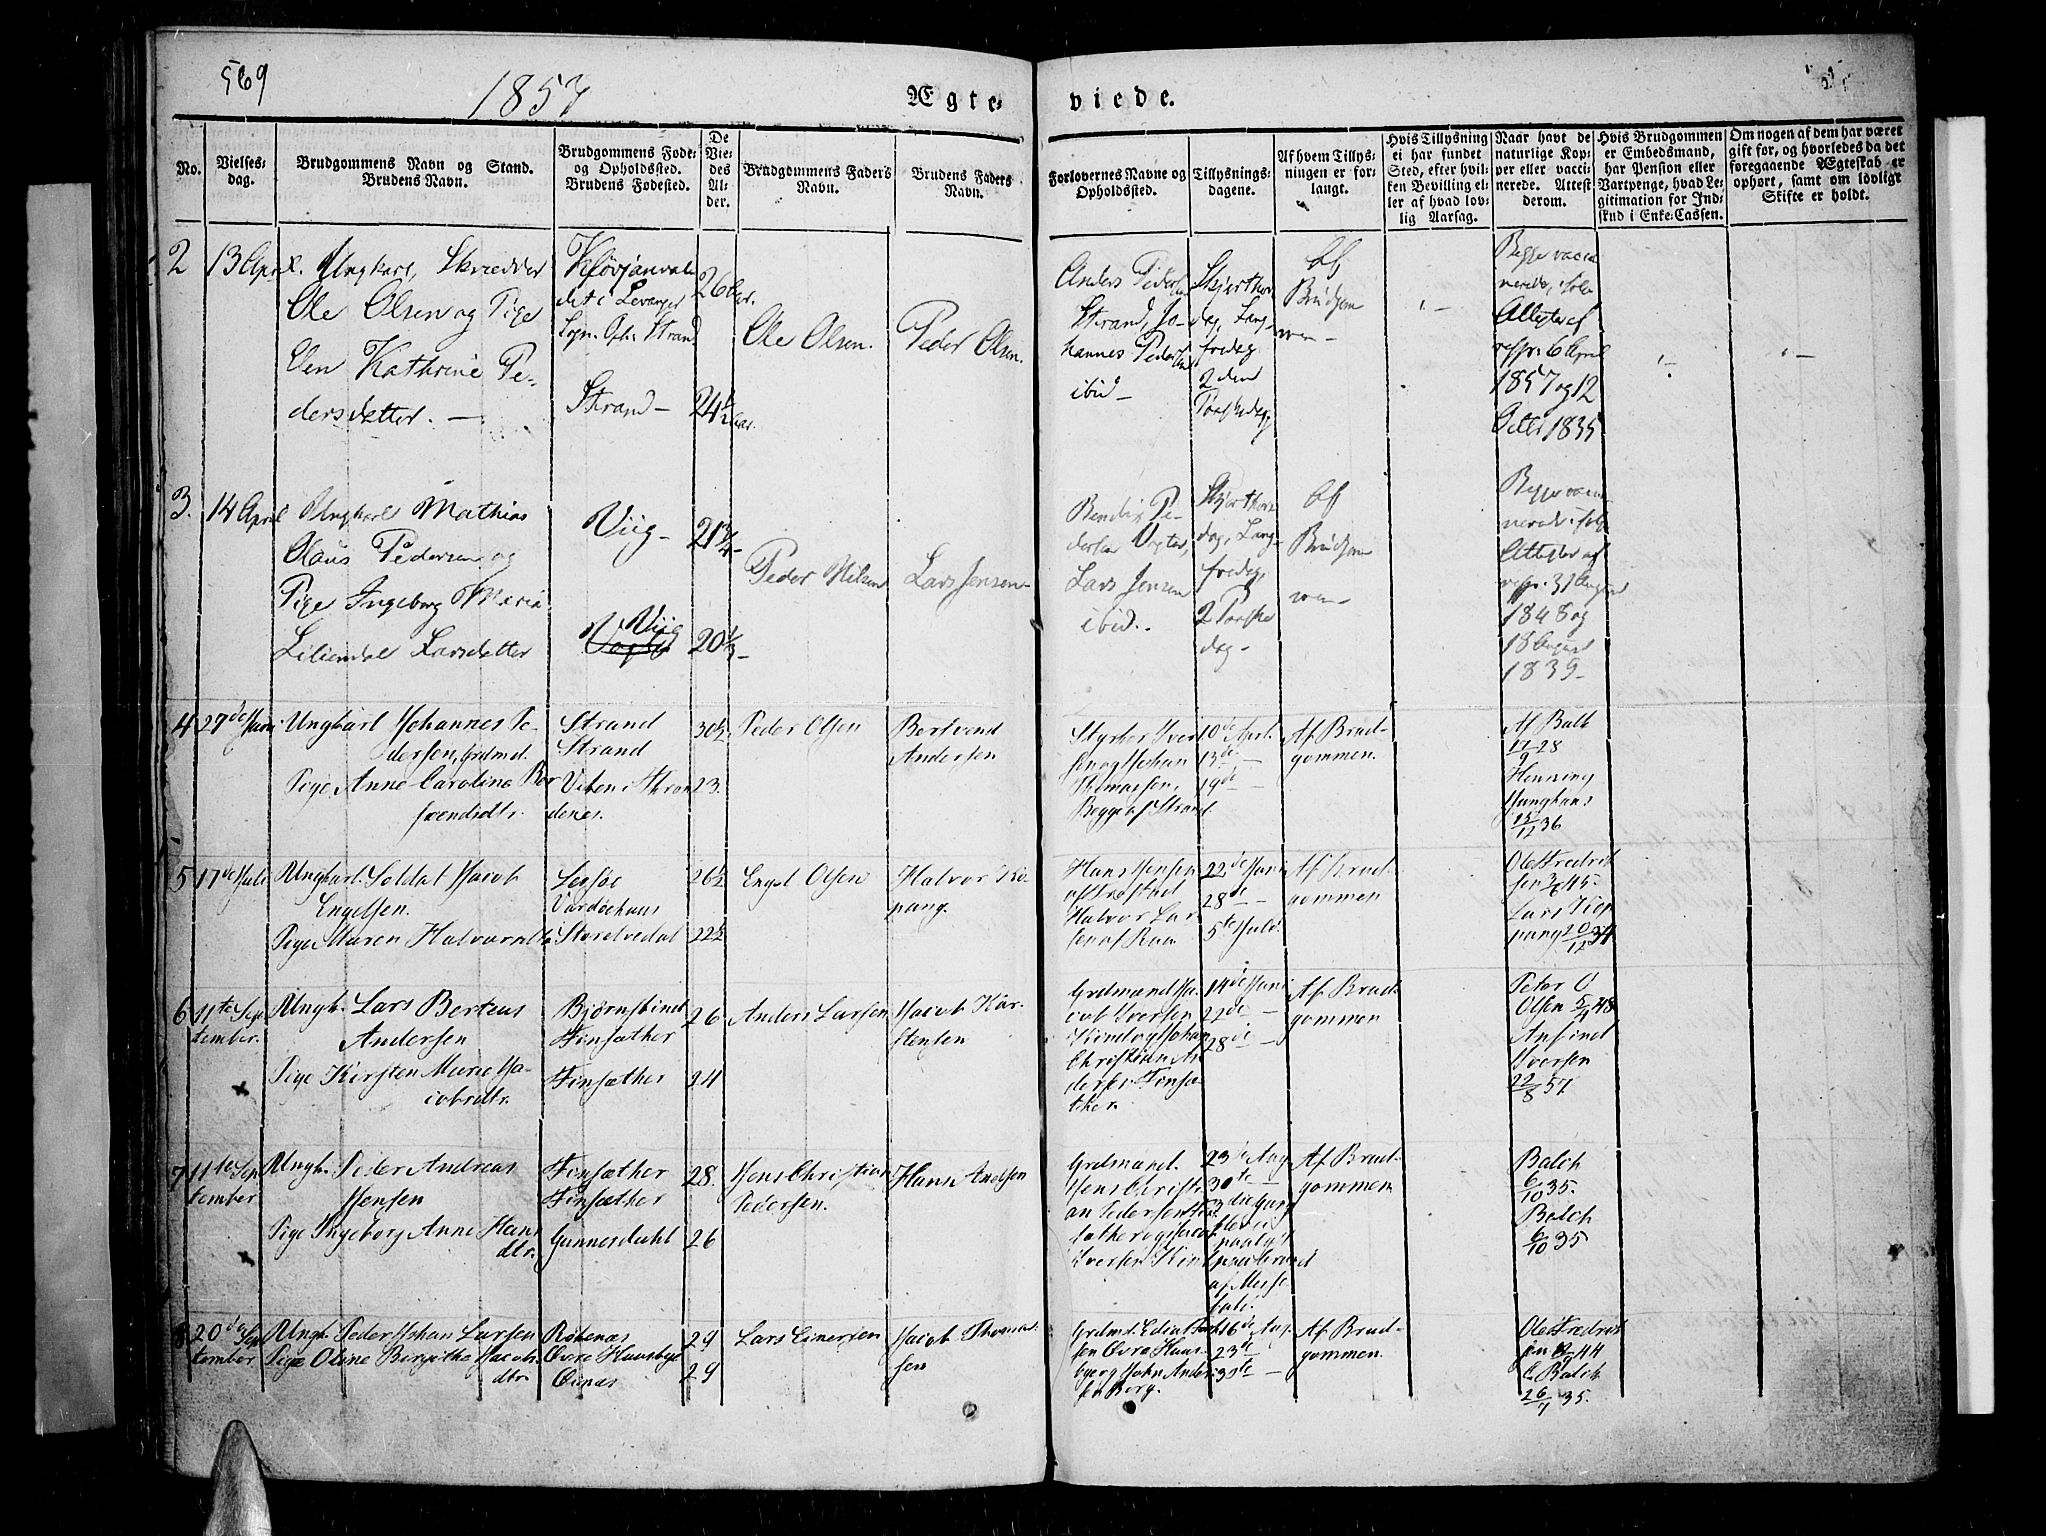 569
1857
Ægteviede.
No.
Vielsesdag.
Brudgommens Navn og Stand.
Brudens Navn.
Brudgommens Føde-
og Opholdssted.
Brudens Fødested.
De
Vie-
des
Al-
der.
Brudgommens Faders
Navn.
Brudens Faders
Navn.
Forlovernes Navne og
Opholdssted.
Tillysnings-
dagene.
Af hvem Tillys-
ningen er for-
langt.
Hvis Tillysning
ei har fundet
Sted, efter hvil-
ken Bevilling el-
ler af hvad lov-
lig Aarsag.
Naar havt de
naturlige Kop-
per eller vacci-
nerede. Attest
derom.
Hvis Brudgommen
er Embedsmand,
har Pension eller
Vartpenge, hvad Le-
gitimation for Ind-
skud i Enke-Cassen.
Om nogen af dem har været
gift før, og hvorledes da det
foregaaende Ægteskab er
ophørt, samt om lovligt
Skifte er holdt.
2
13 April.
Ungkarl, Skrædder
Ole Olsen og Pige
Elen Kathrine Pe-
dersdatter. —
det i Levanger
Sogn. Oph: Strand
Strand —
26 Aar.
24½ Aar.
Ole Olsen.
Peder Olsen.
Anders Peders
Strand, Jo-
hannes Peders
ibid —
Skjærthors
dag, Lang-
fredag
2 den
Paaskedag.
Af
Brudgom
men —
Begge vacci
nerede, ifølge
Attester af
resp. 6 April
1857 og 12
Octbr 1835
3.
14 April
Ungkarl Mathias
Claus Pedersen og
Pige Ingeborg Maria
Liliendal Larsdatter
Viig —
Viig
21¾ —
20⅓ —
Peder Nilsen
Lars Jensen —
Bendix Pe-
dersen Vagter,
Lars Jensen
ibid.
Skjærthors
dag, Lang-
fredag,
2 Paaske
dag —
Af
Brudgom
men —
Begge vacci
nerede ifølge
Attester af
resp. 31 August
1848 og
18 August
1839 —
4
27de Juni
Ungkarl Johannes Pe-
dersen, Grdmd.
Pige Anne Caroline Ber
tvendsdtr.
Strand
Strand
30½
23.
Peder Olsen
Bertvend
Andersen
Styrker Iver
sen og Johan
Thomassen,
Begge af Strand.
10de April.
13de —
19de —
Af Brud-
gommen.
Af Balk
17/9 28
Henning
Junghans
15/12 36
5
17de Juli
Ungkarl. Soldat Jacob
Engelsen.
Pige Maren Halvorsdtr
Lesjøe
Vardøehuus
Storelvedal
26½
22½
Engel Olsen
Halvor Ko-
pang.
Hans Jensen
af Trøstad
Halvor Lar
sen af Raa
22de Juni
28de —
5te Juli.
Af Brud
gommen
Ole Fredrik
sen 3/6 45.
Lars Kop
pang 20/12 34
6
11te Sep
tember.
Ungk. Lars Berteus
Andersen
Pige Kirsten Marie Ja-
cobsdtr.
Finsæther
Finsæther
26
24
Anders Larsen
Jacob Kar-
stensen
Grdmænd Ja-
cob Iversen
Kind og Johan
Christian An
dersen Finsæ-
ther.
14de Juni
22de —
28de —
Af Brud-
gommen
Peter O
Olsen 5/4 48
Anfind
Iversen
22/8 57.
7
11te Sep
tember
Ungk. Peder Andreas
Jensen
Pige Ingeborg Anne Hans
dtr.
Finsæther
Finsæther
Gunnersdahl
28.
26
Jens Christian
Pedersen.
Hans Andsfen
Grdmænd.
Jens Christi
an Pedersen Fins
sæther og Jacob
Iversen Kind
23de Aug
30te —
3die Gang
blev i
Af Brud-
gommen
Balch
6/10 35.
Balch
6/10 35
8.
20de Sep
tember
Ungk. Peder Johan Larsen
Pige Oline Birgithe Jacobs.
dtr.
Røkenæs
Øvre Haasbye
Øinæs
29
29
Lars Einersen
Jacob Thomas-
sen
Grdmd.
sen Øvre Haas-
bye og John Ander
sen Borg.
16de Aug.
23de
30te —
Af Brud-
gommen.
Ole Fredrik
sen 44
E Balch
26/7 35.